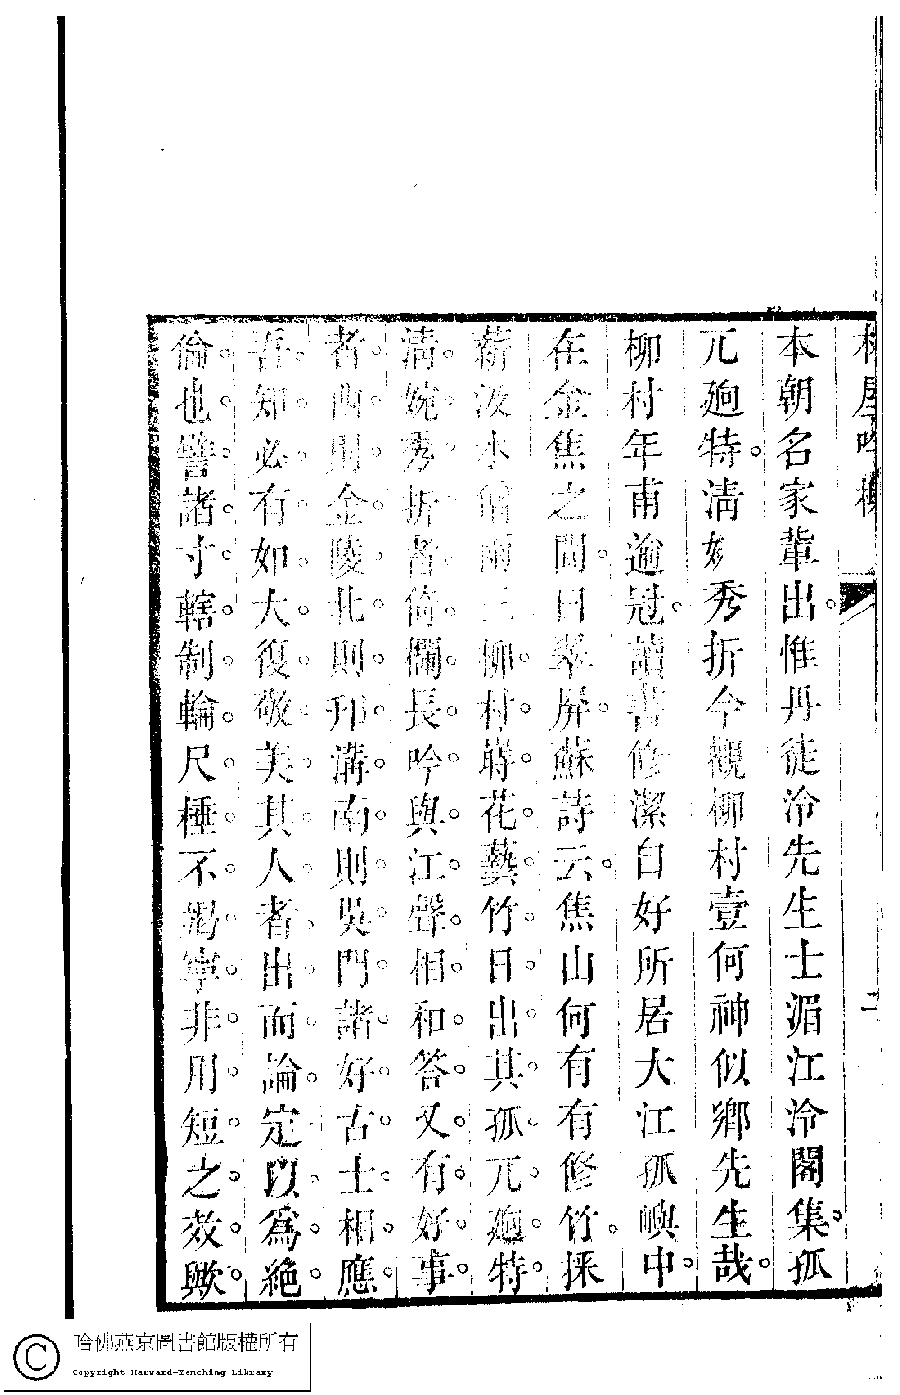 本朝名家輩出惟丹徒冷先生士湄江泠閣集孤
兀廻特清妍秀折今觀柳村壹何神似鄉先生哉
柳村年甫逾冠讀書修潔自好所居大江孤嶼中
在金焦之間日翠屏蘇詩云焦山何有有修竹採
薪汲水僧兩三柳村蒔花藝竹日出其孤兀廻特
清婉秀折者倚欄長吟與江聲相和答又有好事
者西則金陵北則邗溝南則吳門諸好古士相應
吾知必有如大復敬美其人者出而論定以為絕
倫也譬諸寸轄制輪尺棰不竭寧非用短之效歟
二
哈佛燕京圖書館版權所有
Copyright Harvard-Yenching Library